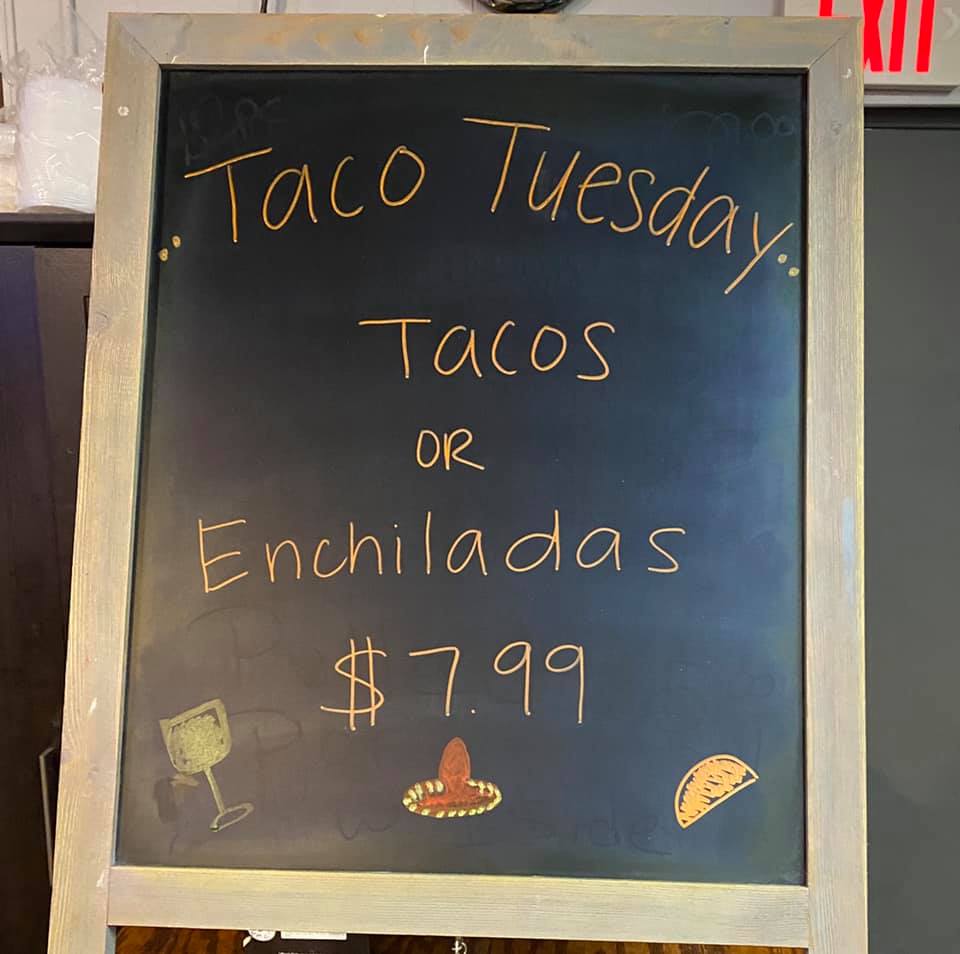 EXIT
..Taco Tuesday..
Tacos
OR
Enchiladas
$7.99